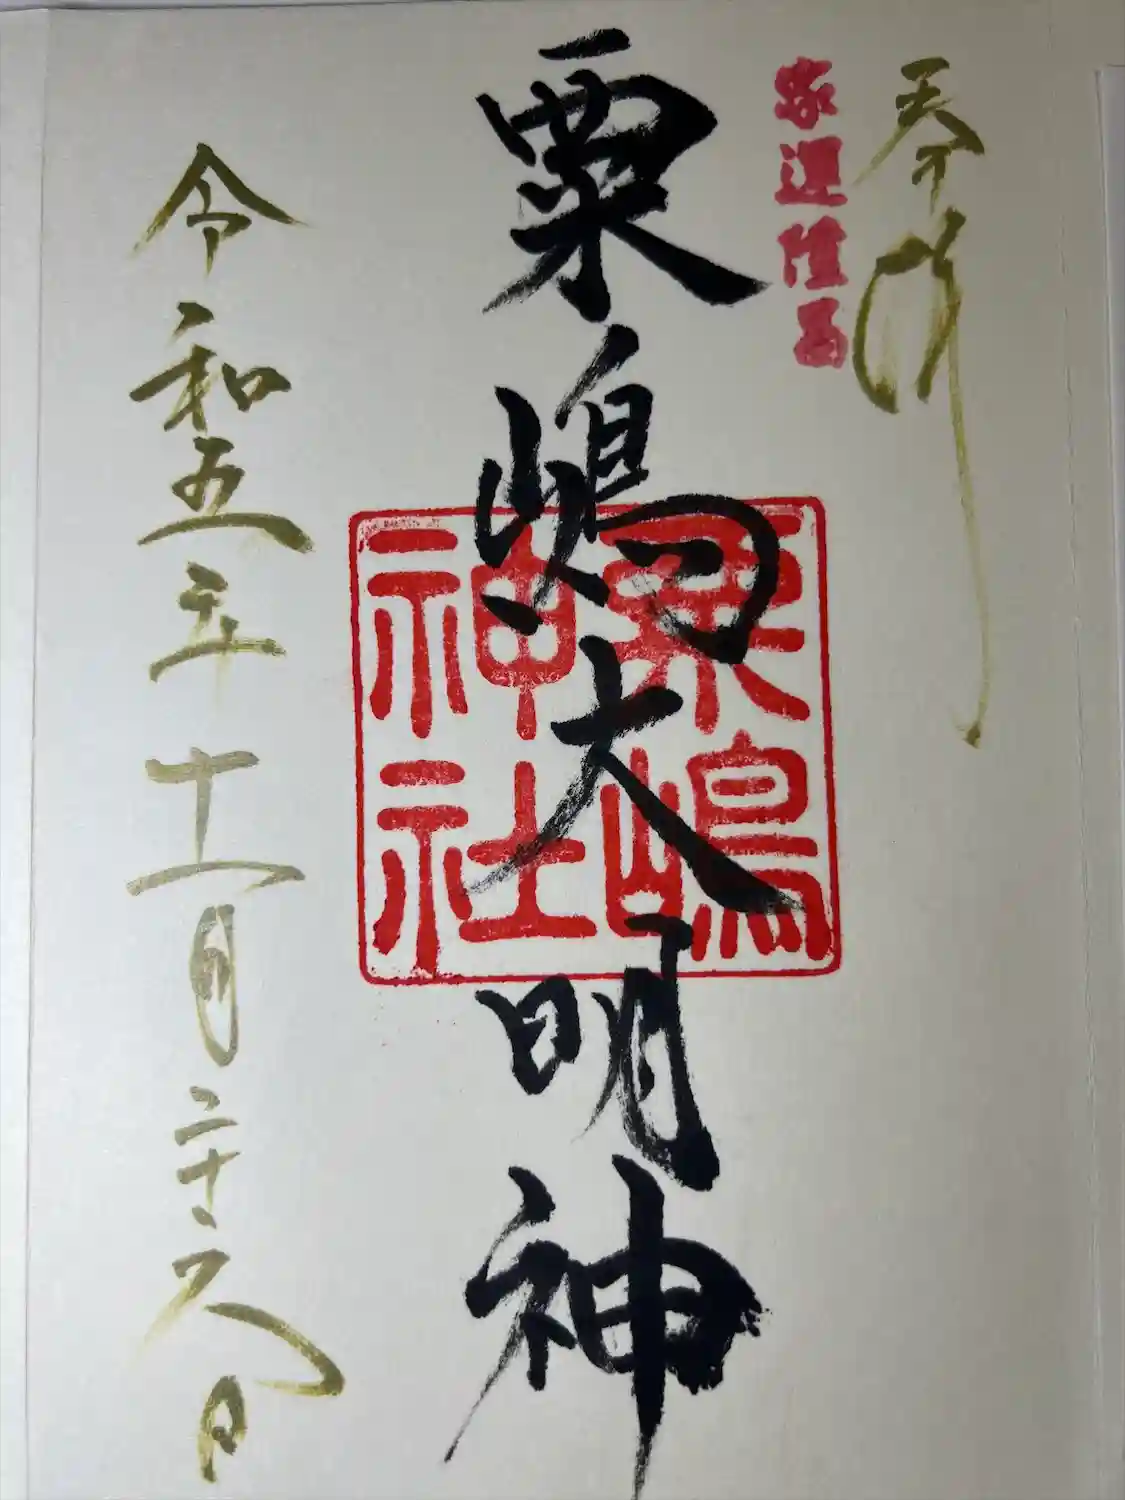 奉拝
家運隆昌
粟嶋大明神
粟嶋
神社
令和五年十一月二十六日